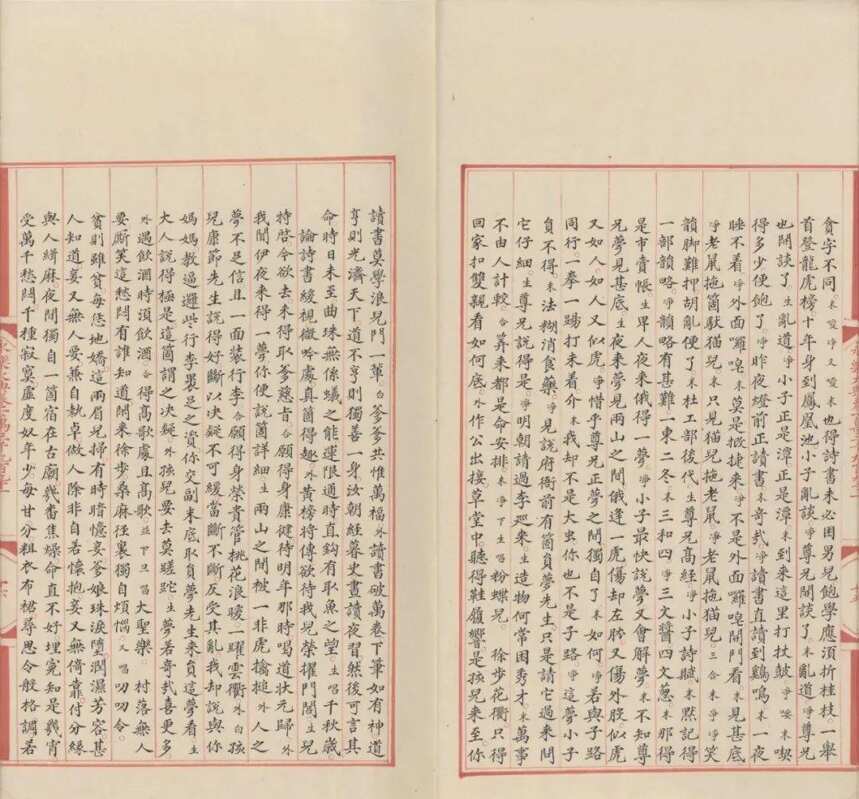 貪字不同。末噯淨又噯末也得詩書未必困男兒飽學應須折桂枝。一舉
首登龍虎榜。十年身到鳳凰池小子亂談淨尊兄閒談了末亂道淨尊兄
也閒談了生亂道淨小子正是潭正是潭末到来這里打杖鼓淨噯末喫
得多少便飽了淨昨夜燈前正讀書末奇哉淨讀書直讀到鷄鳴末一夜
睡不着淨外面囉唣末莫是捉捷来淨不是外面囉唣開門看末見甚底
淨老鼠拖箇馱猫兒末只見猫兒拖老鼠淨老鼠拖猫兒。三合末淨淨笑
韻脚難押胡亂便了末杜工部後代生尊兄高經淨小子詩賦末黙記得
一部韻略。淨韻略有甚難一東二冬末三和四淨三文醬四文葱末那得
是市賣帳生畢人夜来俄得一夢淨小子最快説夢又會解夢末不知尊
兄夢見甚底生夜来夢見兩山之間俄逢一虎傷却左胯又傷外股似虎
又如人如人又似虎淨惜乎尊兄正夢之間獨自了末如何淨若與子路
同行。一拳一踢打末看介末我却不是大虫你也不是子路。淨這夢小子
負不得末法糊消食藥淨見説府衙前有箇負夢先生只是請它過来問
它仔細生尊兄説得是。淨明朝請過李廵来。生造物何常困秀才末萬事
不由人計較。合笇来都是命安排末淨丁生唱粉蝶兒。　徐步花衢只得
回家扣雙親看如何底。外作公出接草堂中。聽得鞋履響是孩兒来至你
讀書莫學浪兒門一輩。白爹爹共惟萬福外讀書破萬卷下筆如有神道
亨則光濟天下道不亨則獨善一身汝朝經暮史晝讀夜習然後可言其
命時日未至曲珠無係蟻之能運限通時直鈎有取魚之望。生唱千秋歳
論詩書緩視微吟處真箇得趣外黄榜將傳欲待我兒榮擢門閭生兒
特啓今欲去未得取爹慈旨合願得身康健待明年那時喝道狀元歸外
我聞伊夜来得一夢你便説箇詳細生兩山之間被一非虎擒搥外人之
夢不足信且一面裝行李合願得身榮貴管桃花浪暖一躍雲衢外白孩
兒康節先生説得好斷以決疑不可緩當斷不斷反受其亂我却説與你
媽媽教過邏些行李裹足之資你交副末底取負夢先生来負這夢看生
大人説得極是這箇謂之决疑。外孩兒要去莫蹉跎生夢若奇哉喜更多
外遇飲酒時湏飲酒合得高歌處且高歌並下旦唱大聖樂。　村落無人
要厮笑這愁悶有誰知道閒来徐步桑麻徑裏獨自煩惱又唱叨叨令。
貧則雖貧每恁地嬌這兩眉兒掃有時暗憶妾爹娘珠淚墮潤濕芳容甚
人知道妾又無人要兼自執卓做人除非自若懷抱妾又無倚靠付分縁
與人緝麻夜間獨自一箇宿在古廟。幾畨焦燥命直不好埋寃知是幾宵
受萬千愁悶千種寂寞虚度奴年少每甘分粗衣布裙尋思令般格調若